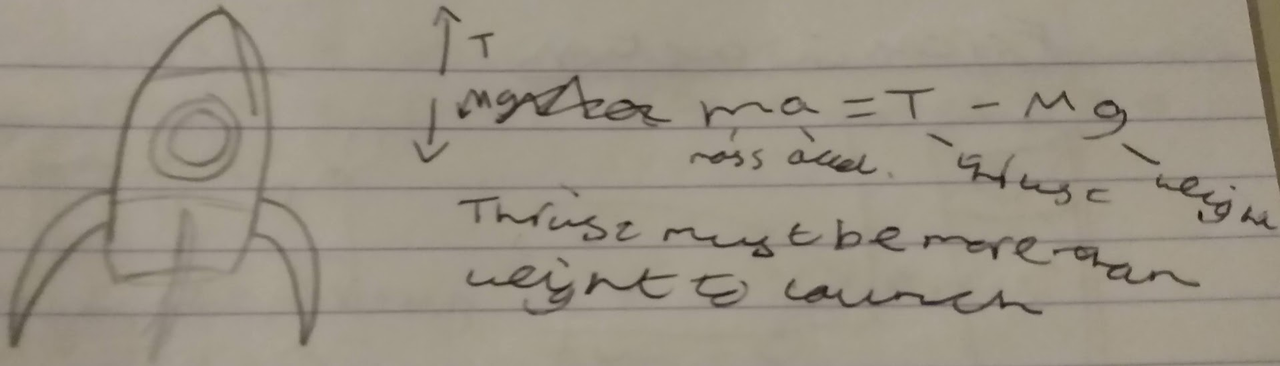 T
Mg ma = T - Mg
mass accel. thrust weight
Thrust must be more than
weight to launch